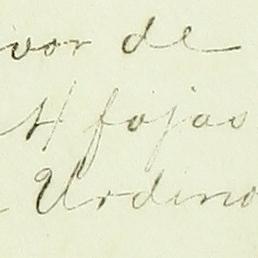 vor de
4 fojas
Urdino